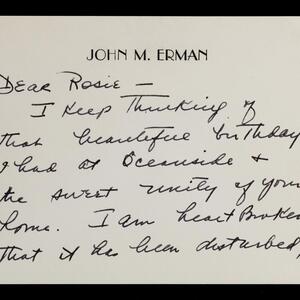 JOHN M. ERMAN
Dear Rosie —
I keep thinking of
that beautiful birthday
I had at Oceanside &
the sweet unity of your
home. I am heart broken
that it has been disturbed,